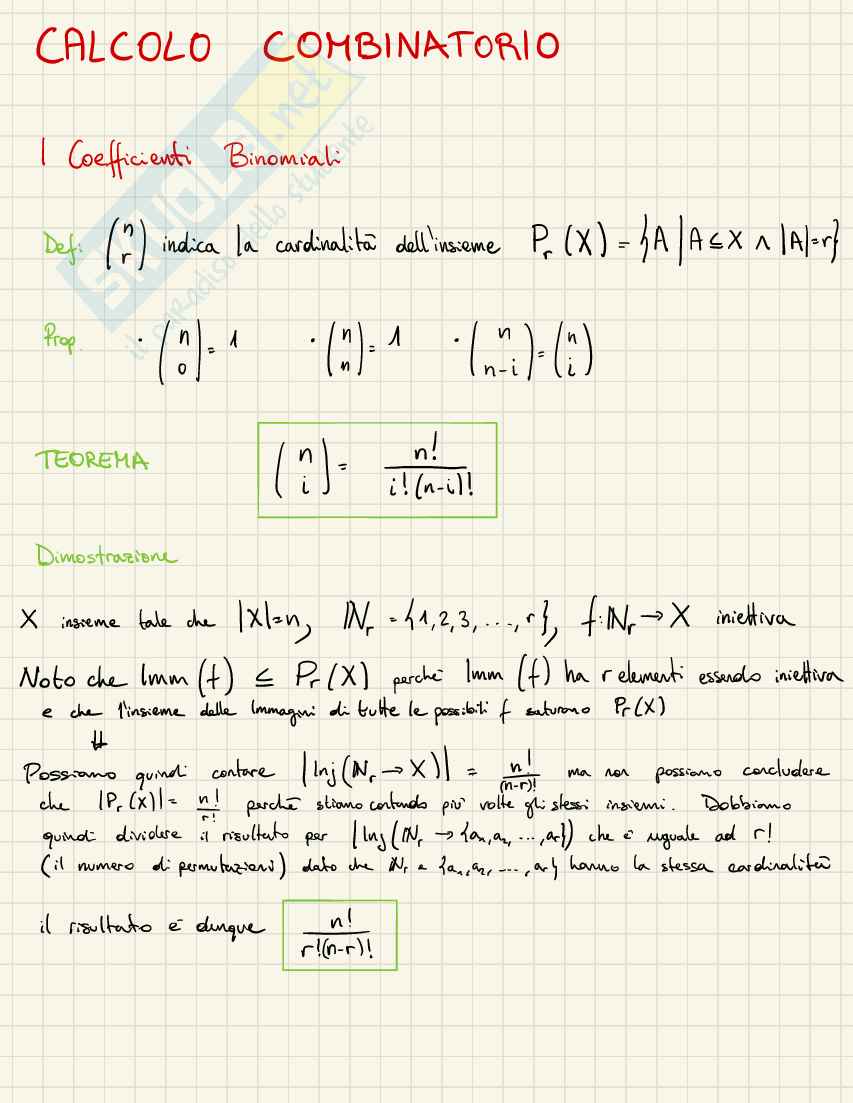 CALCOLO COMBINATORIO
SKUOLA.net
il paradiso dello studente
I Coefficienti Binomiali
Def: (n r) indica la cardinalità dell'insieme Pr(X) = {A | A ⊆ X ∧ |A|=r}
Prop. · (n 0) = 1 · (n n) = 1 · (n n-i) = (n i)
TEOREMA (n i) = n! / i!(n-i)!
Dimostrazione
X insieme tale che |X|=n, ℕr = {1,2,3,...,r}, f:ℕr → X iniettiva
Noto che Imm(f) ⊆ Pr(X) perché Imm(f) ha r elementi essendo iniettiva
e che l'insieme delle Immagini di tutte le possibili f saturano Pr(X)
⇓
Possiamo quindi contare |Inj(ℕr → X)| = n!/(n-r)! ma non possiamo concludere
che |Pr(X)| = n!/r! perché stiamo contando più volte gli stessi insiemi. Dobbiamo
quindi dividere il risultato per |Inj(ℕr → {a1,a2,...,ar})| che è uguale ad r!
(il numero di permutazioni) dato che ℕr e {a1,a2,...,ar} hanno la stessa cardinalità
il risultato è dunque n! / r!(n-r)!